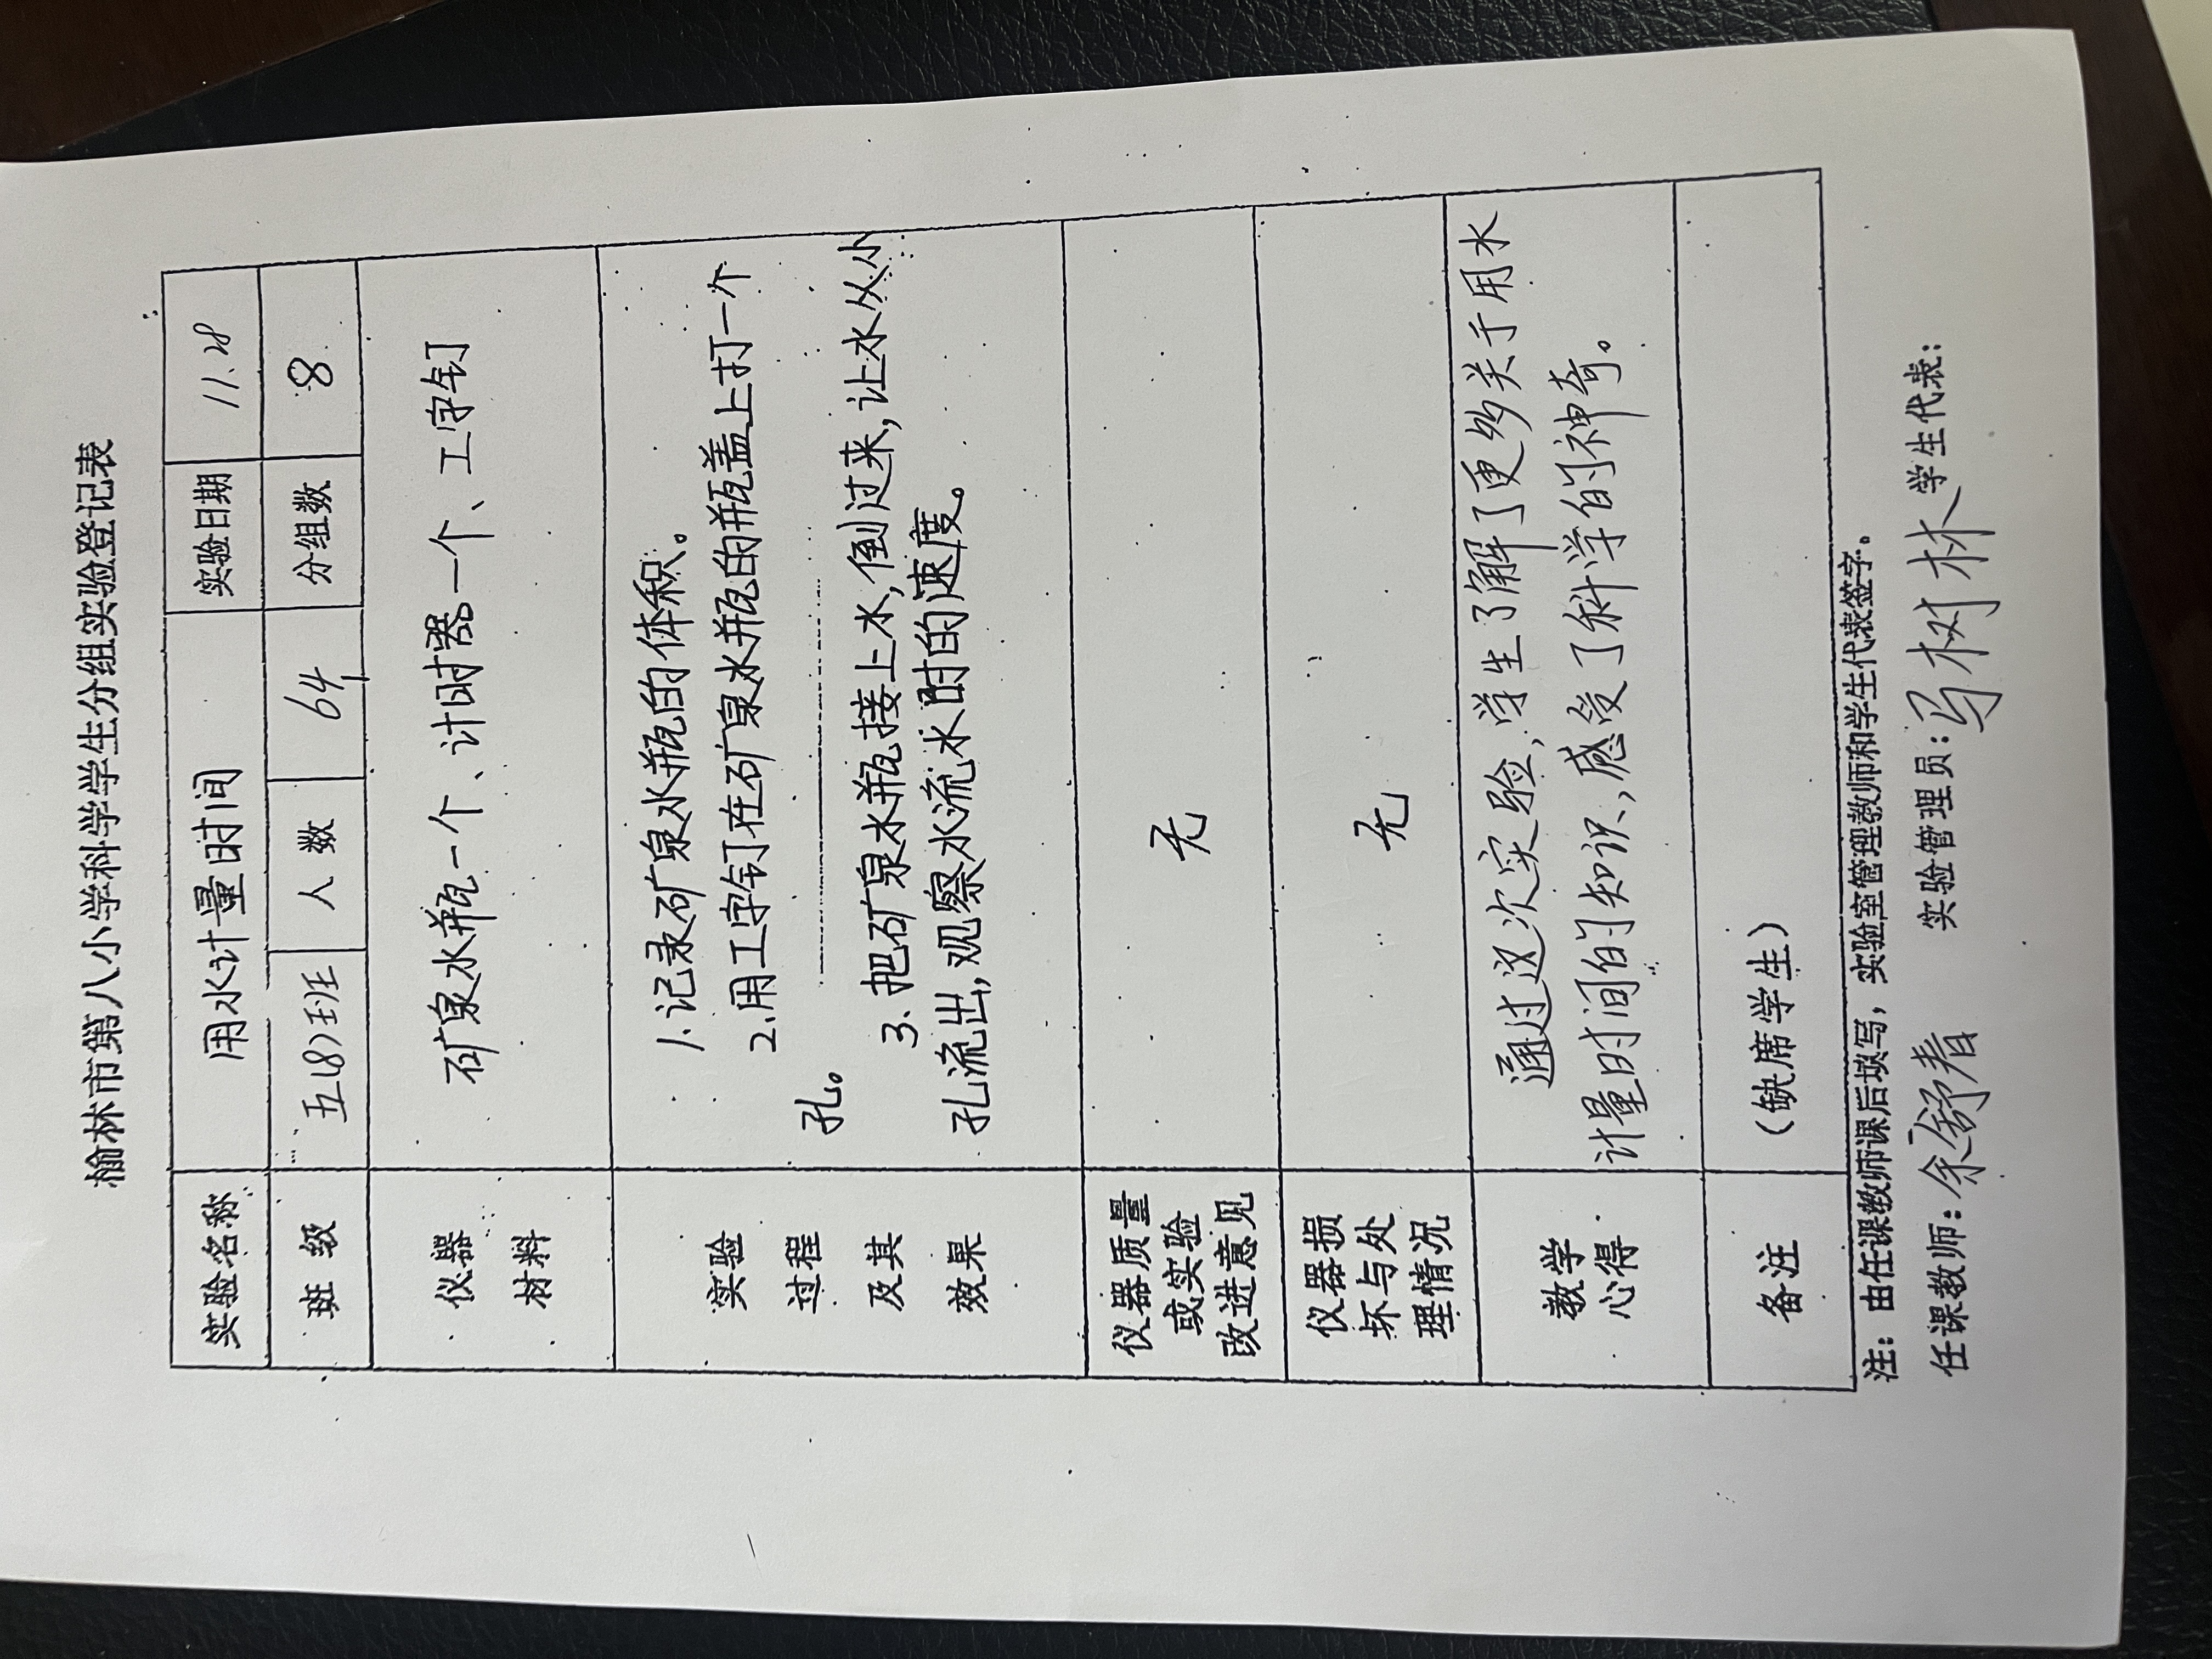 榆林市第八小学科学学生分组实验登记表
实验名称 用水计量时间 实验日期 11.28
班 级 五(8)班 人 数 64 分组数 8
仪器
材料
矿泉水瓶一个、计时器一个、工字钉
实验
过程
及其
效果
1.记录矿泉水瓶的体积。
2.用工字钉在矿泉水瓶的瓶盖上打一个
孔。
3.把矿泉水瓶接上水,倒过来,让水从小
孔流出,观察水流水时的速度。
仪器质量
或实验
改进意见
无
仪器损
坏与处
理情况
无
教学
心得
通过这次实验,学生了解了更多关于用水
计量时间的知识,感受了科学的神奇。
备注
(缺席学生)
注:由任课教师课后填写,实验室管理教师和学生代表签字。
任课教师:余舒春 实验管理员:马树林 学生代表: